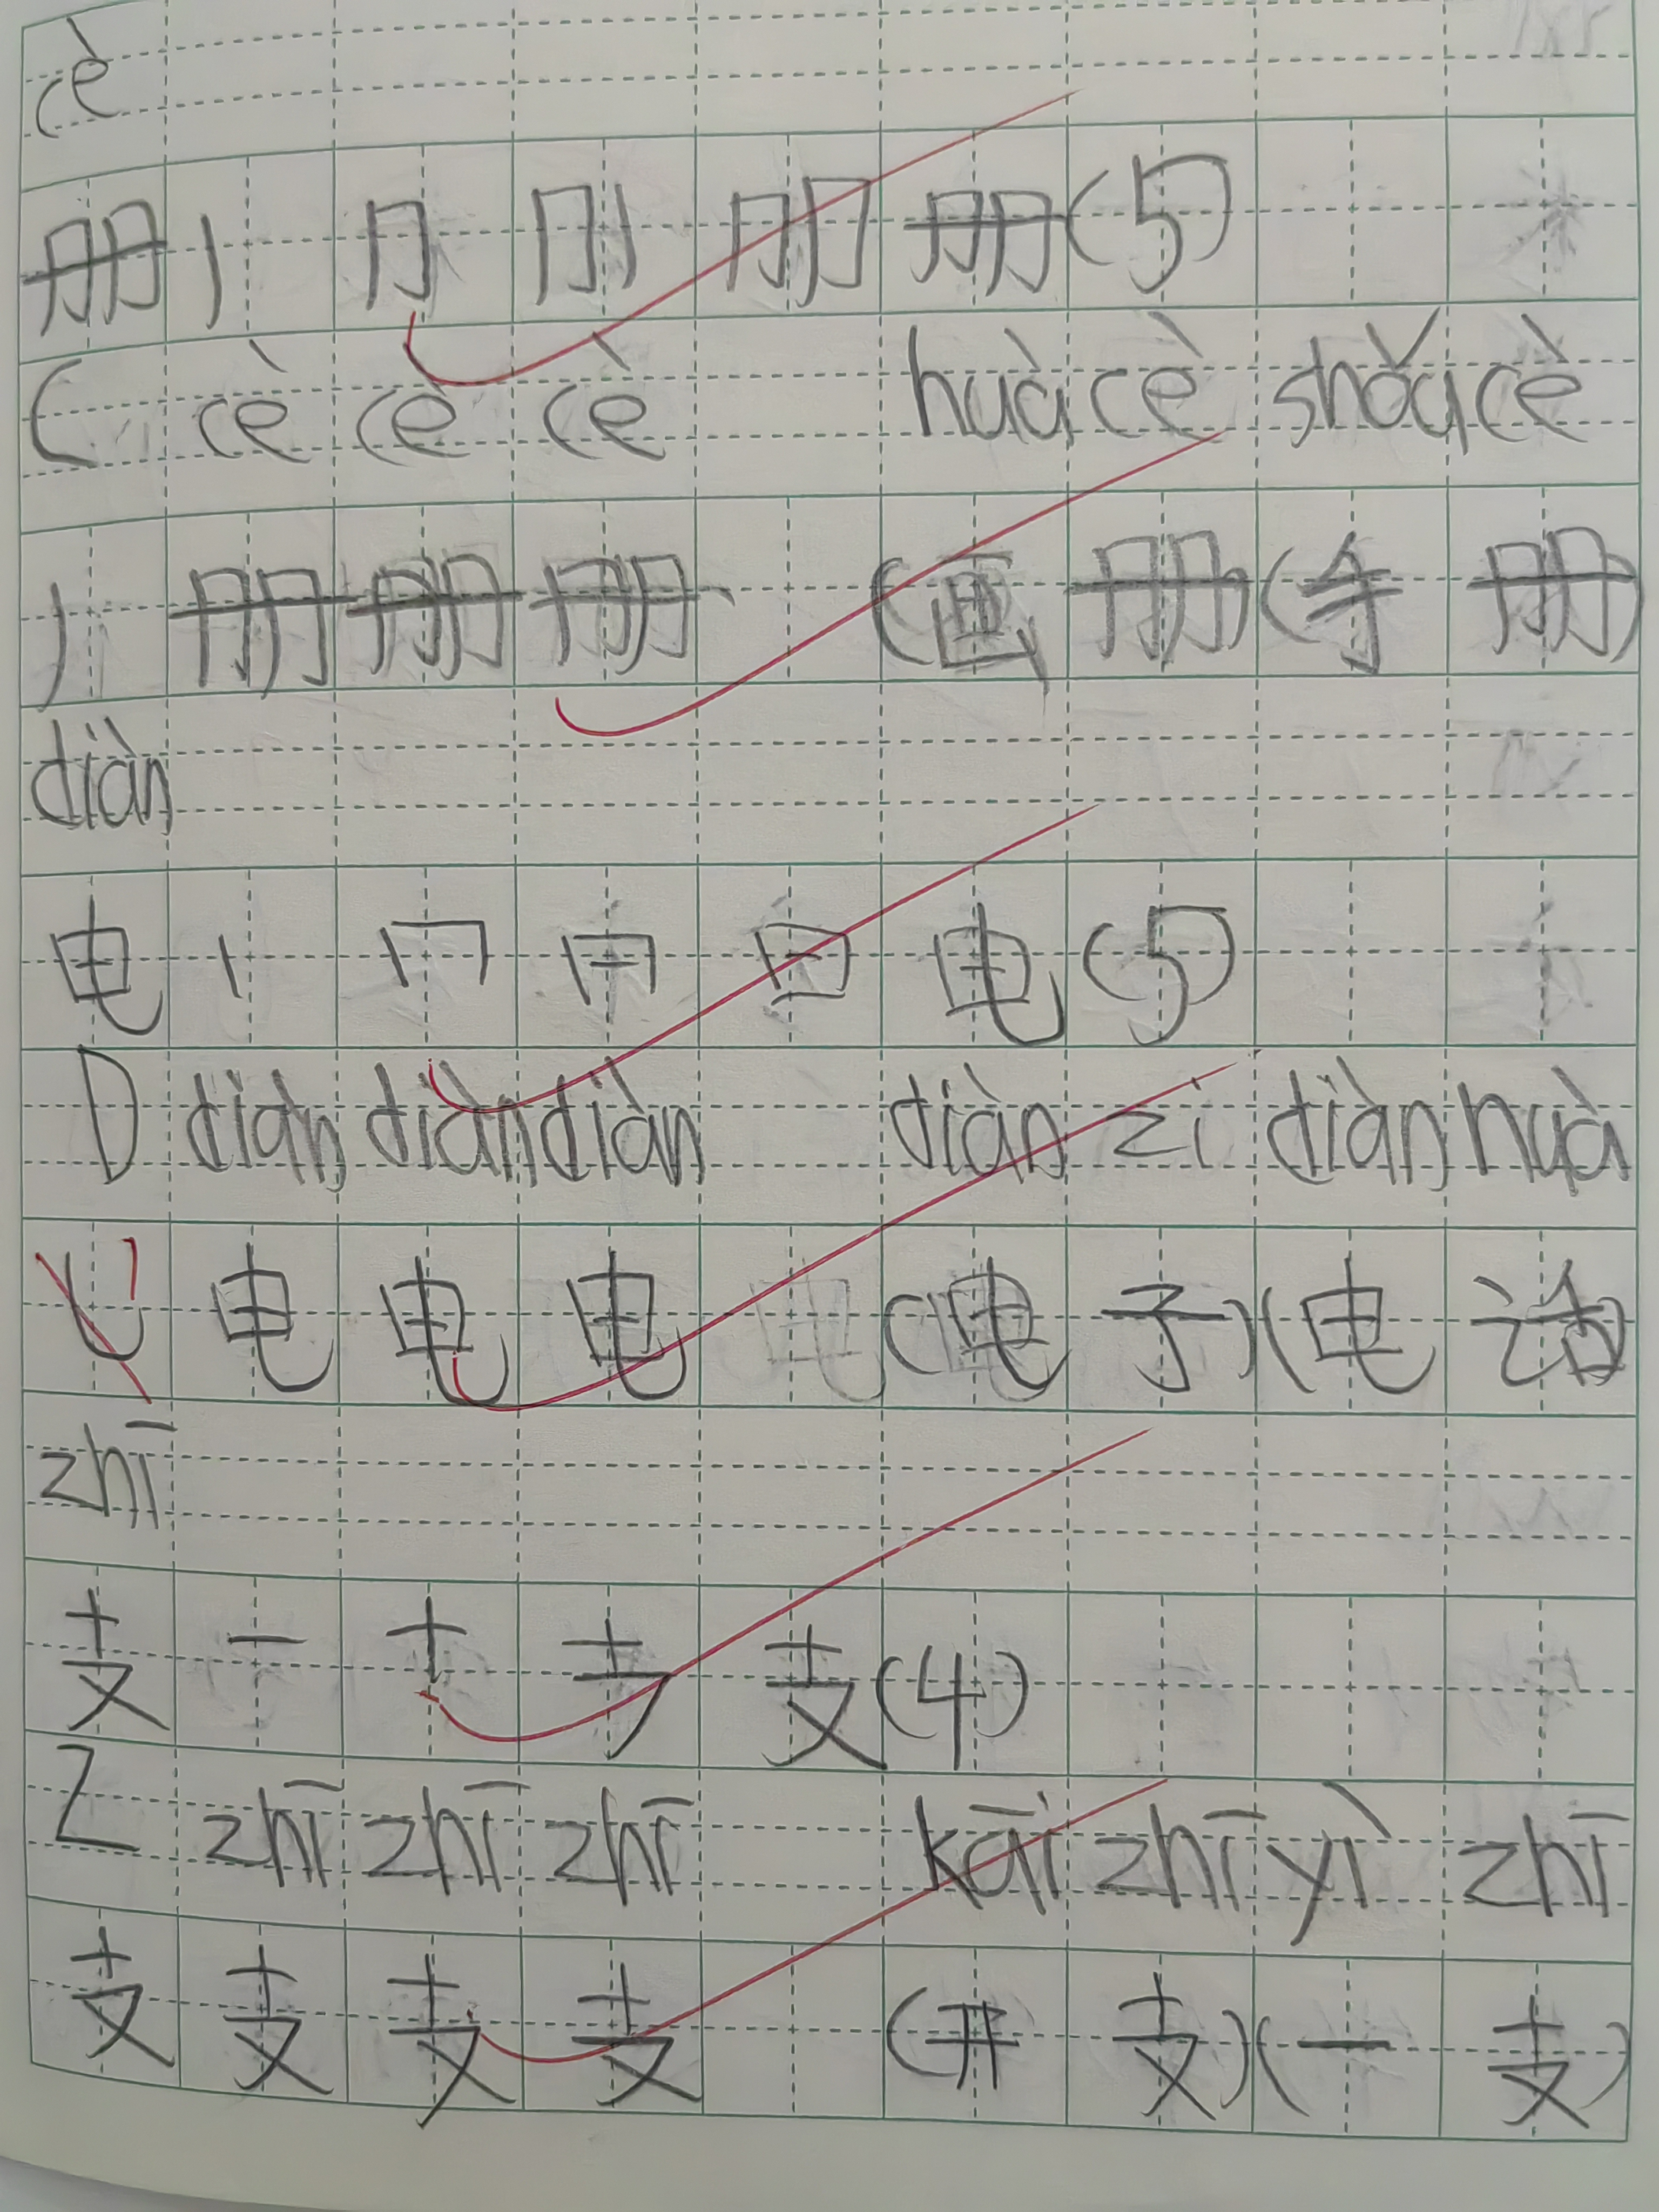 cè
册 丨 ⺆ 刖 册 (5)
C cè cè cè huà cè shǒu cè
丿 册 册 册 (画 册) (手 册)
diàn
电 丨 冂 日 电 (5)
D diàn diàn diàn diàn zi diàn huà
乚 电 电 电 电 (电 子) (电 话)
zhī
支 一 十 支 (4)
Z zhī zhī zhī kāi zhī yì zhī
支 支 支 支 (开 支) (一 支)